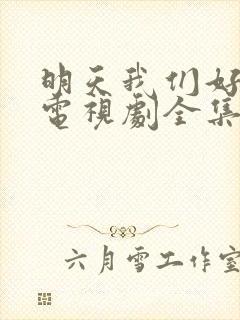 明天我们好
電視劇全集
六月雪工作室